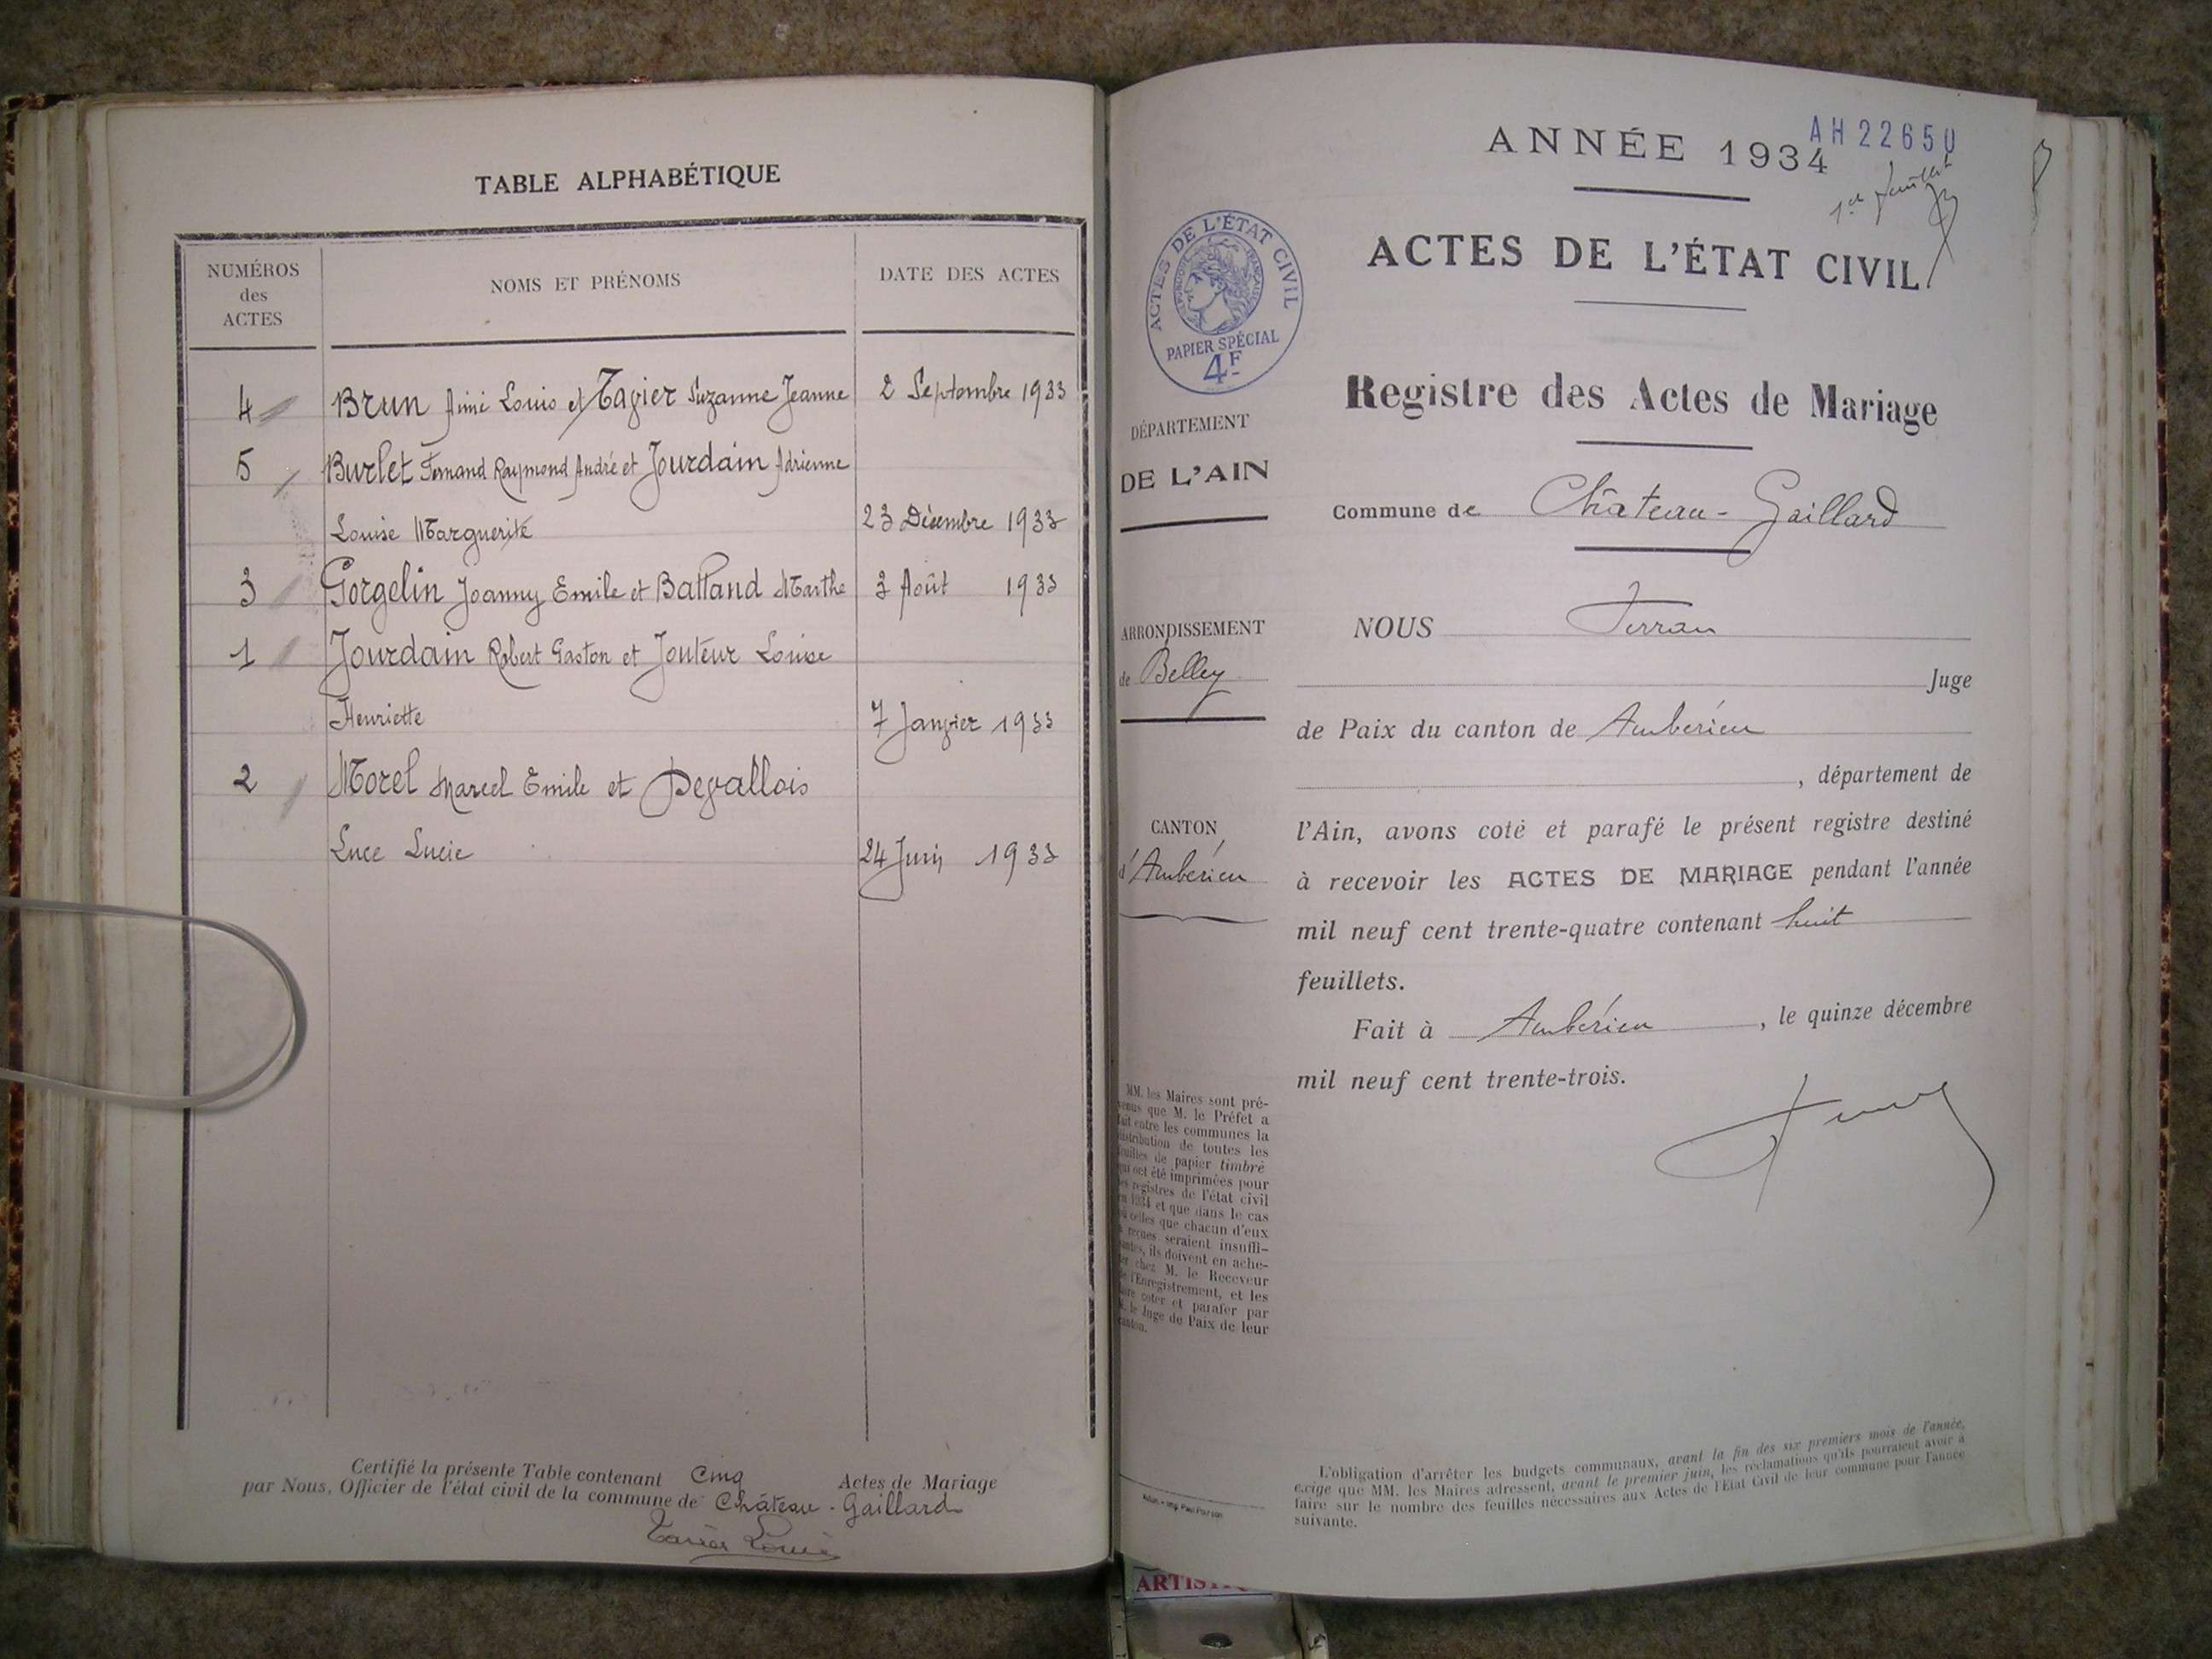 TABLE ALPHABÉTIQUE
NUMÉROS
des
ACTES
NOMS ET PRÉNOMS
DATE DES ACTES
4 Brun Aimé Louis et Tavier Suzanne Jeanne 2 Septembre 1933
5 Burlet Fernand Raymond André et Jourdain Adrienne
Louise Marguerite 23 Décembre 1933
3 Gorgelin Joanny Emile et Balland Marthe 3 Août 1933
1 Jourdain Robert Gaston et Jouteur Louise
Henriette 7 Janvier 1933
2 Morel Marcel Emile et Devallois
Luce Lucie 24 Juin 1933
Certifié la présente Table contenant Cinq Actes de Mariage
par Nous, Officier de l'état civil de la commune de Château-Gaillard
ANNÉE 1934
AH 22650
1er feuillet
ACTES DE L'ÉTAT CIVIL
RÉPUBLIQUE FRANÇAISE
PAPIER SPÉCIAL
4F
ACTES DE L'ÉTAT CIVIL
Registre des Actes de Mariage
DÉPARTEMENT
DE L'AIN
Commune de Château-Gaillard
ARRONDISSEMENT
de Belley
CANTON
d'Ambérieu
NOUS Ferran
Juge
de Paix du canton de Ambérieu
, département de
l'Ain, avons coté et parafé le présent registre destiné
à recevoir les ACTES DE MARIAGE pendant l'année
mil neuf cent trente-quatre contenant huit
feuillets.
Fait à Ambérieu, le quinze décembre
mil neuf cent trente-trois.
MM. les Maires sont pré-
venus que M. le Préfet a
fait entre les communes la
distribution de toutes les
feuilles de papier timbré
qui ont été imprimées pour
les registres de l'état civil
en 1934 et que dans le cas
où celles que chacun d'eux
a reçues seraient insuffi-
santes, ils doivent en ache-
ter chez M. le Receveur
de l'Enregistrement, et les
faire coter et parafer par
M. le Juge de Paix de leur
canton.
L'obligation d'arrêter les budgets communaux, avant la fin des six premiers mois de l'année,
exige que MM. les Maires adressent, avant le premier juin, les réclamations qu'ils pourraient avoir à
faire sur le nombre des feuilles nécessaires aux Actes de l'Etat Civil de leur commune pour l'année
suivante.